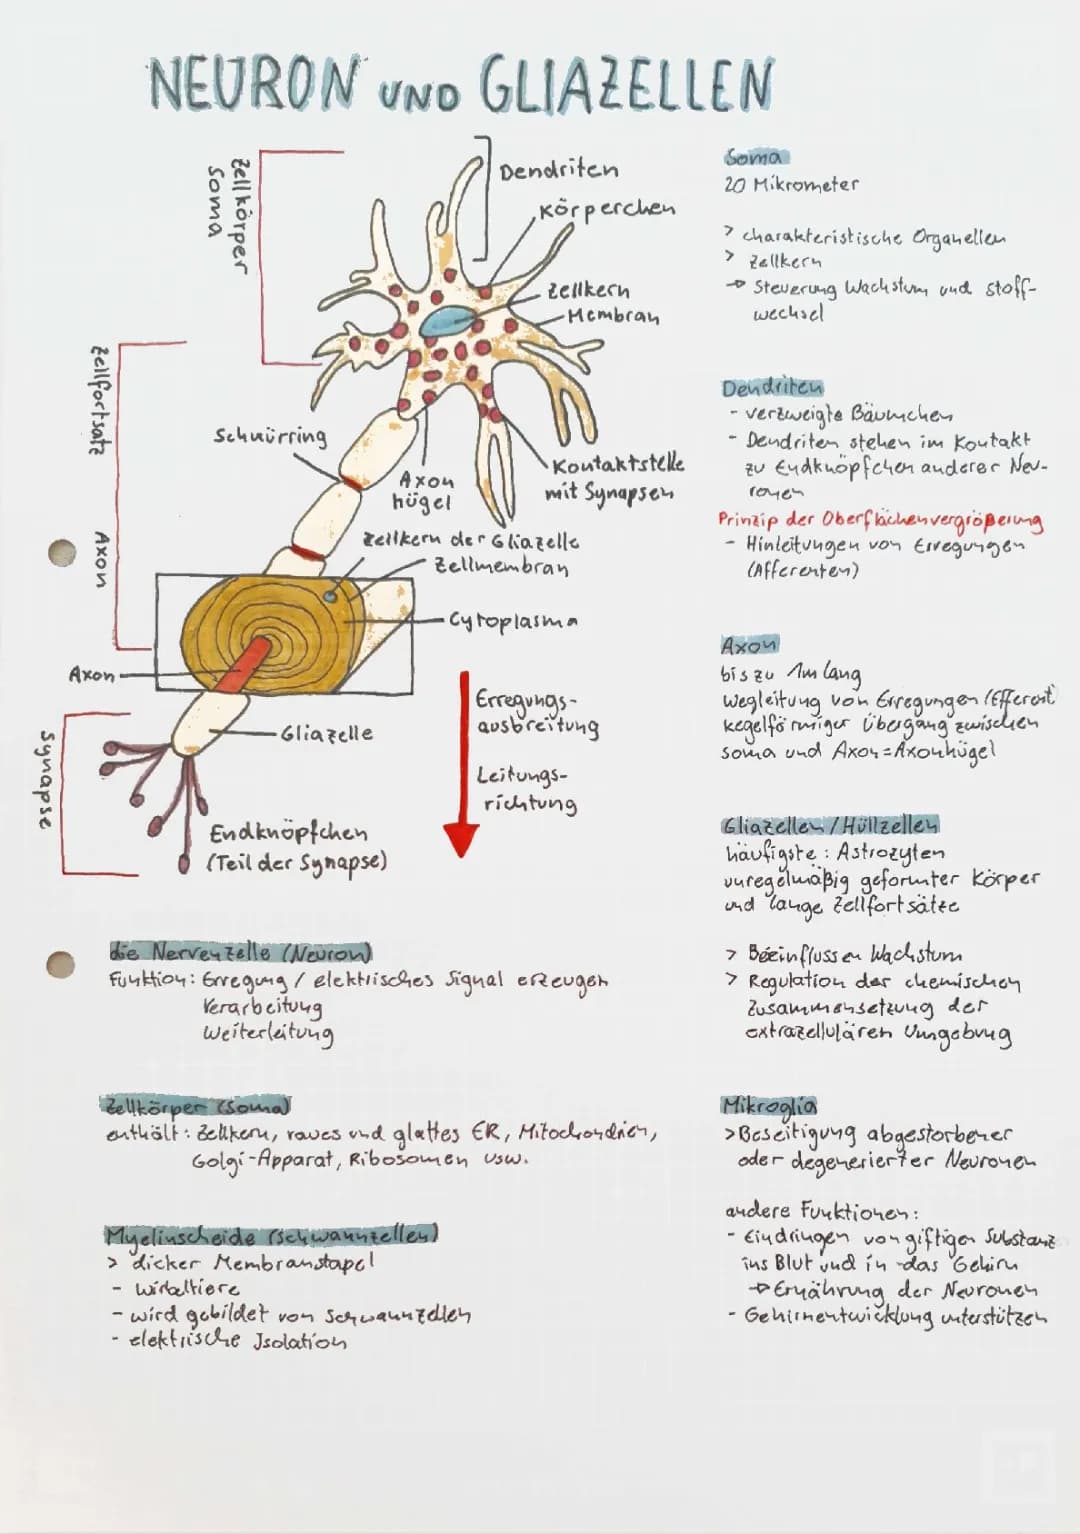 NEURON UND GLIAZELLEN
Zellkörper
Soma
Dendriten
Körperchen
Zellkern
Membran
Zellfortsatz
Axon
Schnürring
Axon
hügel
Kontaktstelle
mit Synapsen
Zellkern der Gliazelle
Zellmembran
Cytoplasma
Axon
Gliazelle
Erregungs-
ausbreitung
Leitungs-
richtung
Synapse
Endknöpfchen
(Teil der Synapse)
die Nervenzelle (Neuron)
Funktion: Erregung / elektrisches Signal erzeugen
Verarbeitung
Weiterleitung
Zellkörper (Soma)
enthält: Zellkern, raues und glattes ER, Mitochondrien,
Golgi-Apparat, Ribosomen usw.
Myelinscheide (Schwannzellen)
> dicker Membranstapel
- Wirbeltiere
- wird gebildet von Schwannzellen
- elektrische Isolation
Soma
20 Mikrometer
> charakteristische Organellen
> Zellkern
→ Steuerung Wachstum und Stoff-
wechsel
Dendriten
- verzweigte Bäumchen
- Dendriten stehen im Kontakt
zu Endknöpfchen anderer Neu-
ronen
Prinzip der Oberflächenvergrößerung
- Hinleitungen von Erregungen
(Afferenten)
Axon
bis zu 1m lang
Wegleitung von Erregungen (Efferent)
kegelförmiger Übergang zwischen
Soma und Axon = Axonhügel
Gliazellen / Hüllzellen
häufigste: Astrozyten
unregelmäßig geformter Körper
und lange Zellfortsätze
> Beeinflussen Wachstum
> Regulation der chemischen
Zusammensetzung der
extrazellulären Umgebung
Mikroglia
> Beseitigung abgestorbener
oder degenerierter Neuronen
andere Funktionen:
- Eindringen von giftigen Substanz
ins Blut und in das Gehirn
→ Ernährung der Neuronen
- Gehirnentwicklung unterstützen